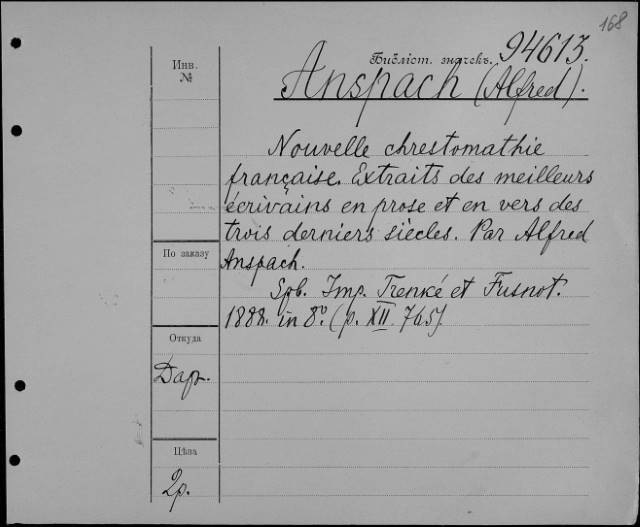 168
Инв.
№
Библіот. значекъ. 94613.
Anspach (Alfred).
Nouvelle chrestomathie
française. Extraits des meilleurs
écrivains en prose et en vers des
trois derniers siècles. Par Alfred
По заказу
Anspach.
Spb. Imp. Trenké et Fusnot.
1888. in 8º. (p. XII. 765).
Откуда
Даръ.
Цѣна
2р.